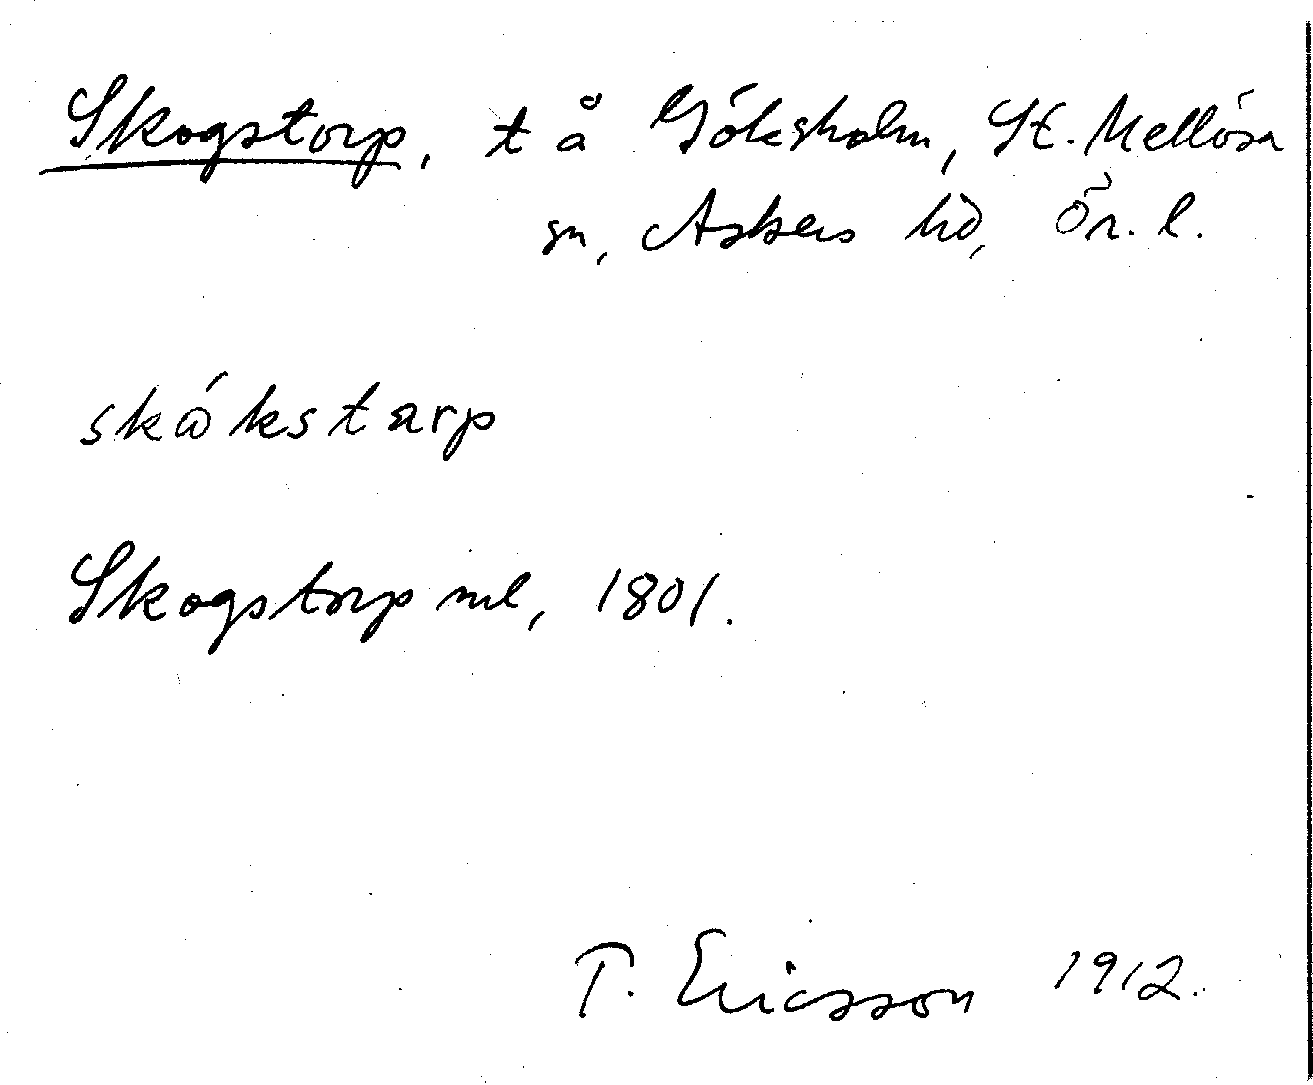 Skogstorp, t å Göksholm, St. Mellösa
sn, Askers hd, Ör. l.
skɷ́kstarp
Skogstorp ml, 1801.
T. Ericsson 1912.